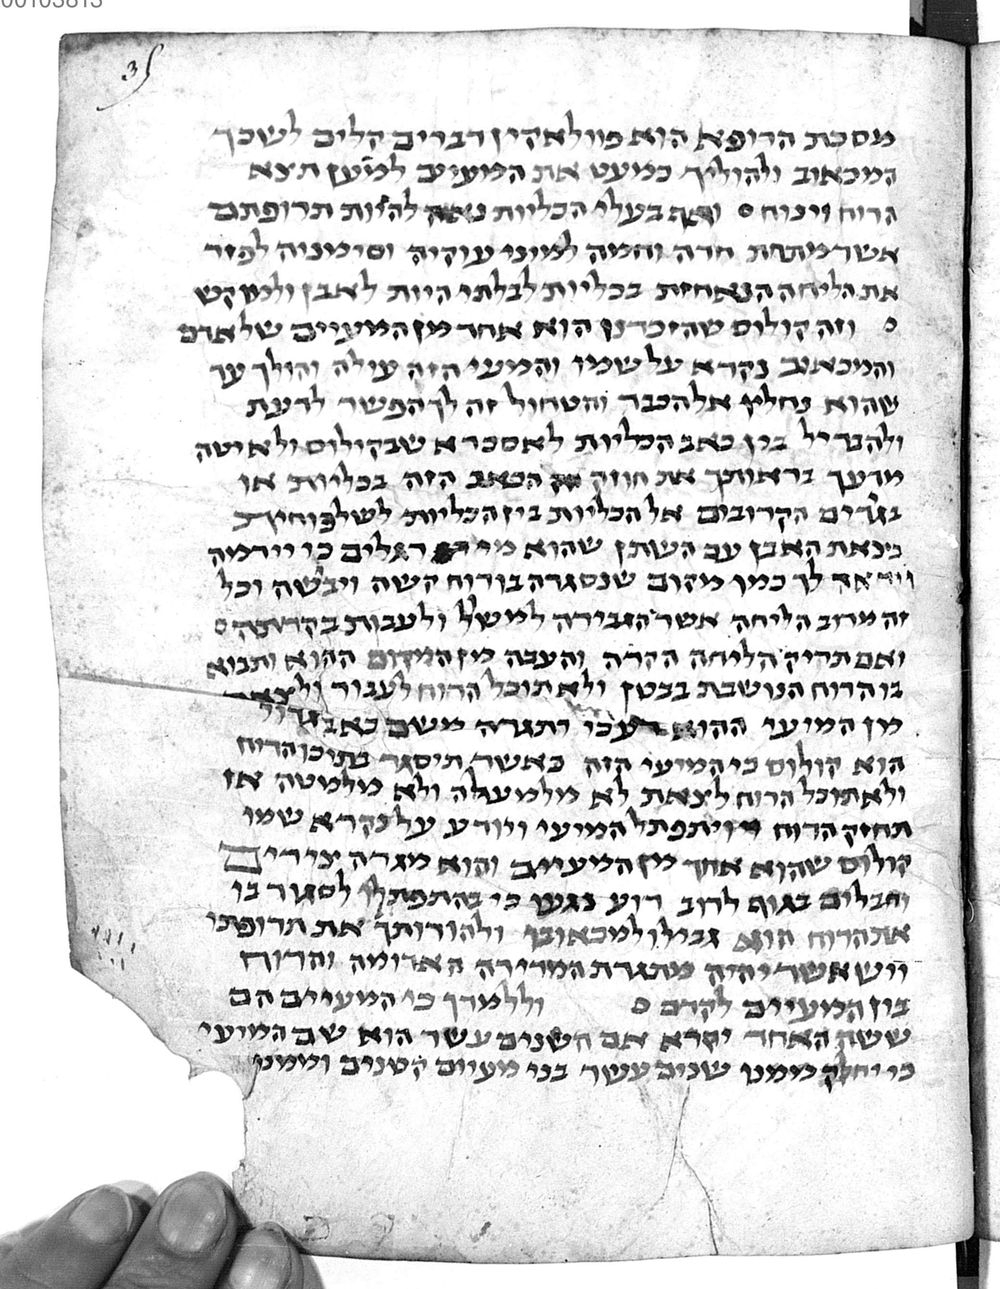 00103813
מסכת הרופא הוא פוולאקין דברים קלים לשכך
המכאוב ולהוליך כמעט את המעיים למען תצא
הרוח וינוח ואף בעלי הכליות נאה להיות תרופתם
אשר מתחת חדה וחמה למיני עוקיה וסימניה לפזר
את הליחה הנאחזת בכליות לבלתי היות לאבן ולמוקש
וזה קולוס שהזכרנו הוא אחד מן המעיים של אדם
והמכאוב נקרא על שמו והמעי הזה עולה והולך עד
שהוא נחלץ אל הכבד והטחול זה לך הפשר לדעת
ולהבדיל בין כאב הכליות לאספרא שבקולוס ולא יטה
מדעך בראותך את חוזק הכאב הזה בכליות או
בגדים הקרובים אל הכליות בין הכליות לשלפוחית
ביצאת האבן עם השתן שהוא מי רגלים כי יידמה
וייראה לך כמו מקום שנסגרה בו רוח קשה ויבשה וכל
זה מרוב הליחה אשר הגבירה למשול ולעבות בקרתה
ואם תקיק הליחה הקרה והעבה מן המקום ההוא ותבוא
בו הרוח הנושבת בבטן ולא תוכל הרוח לעבור ולצאת
מן המיעי ההוא כי יתגרה משם כאב גדול
הוא קולוס כי המיעי הזה כאשר תיסגר בתוכו הרוח
ולא תוכל הרוח לצאת לא מלמעלה ולא מלמטה אז
תחזק הרוח ויתפתל המיעי ויודע על נקרא שמו
קולוס שהוא אחד מן המעיים והוא מגרה צירים
וחבלים בגוף לרוב רוע נגעו כי בהתפתלו לסגור בו
את הרוח הוא גבולו למכאובו ולהורותך את תרופתו
ויש אשר יהיה מתגרת המרירה האדומה והרוח
בוז המעיים לקדם וללמדך כי המעיים הם
ששה האחד יקרא אם השנים עשר הוא שם המיעי
כי יחלק ממנו שנים עשר בני מעיים קטנים וממנו